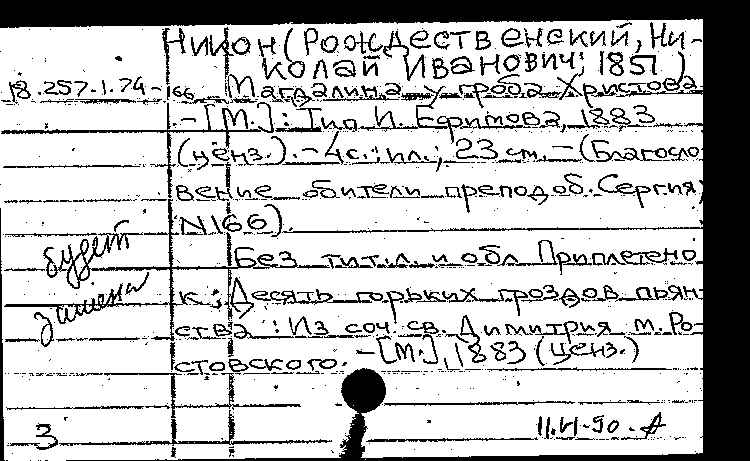 Никон (Рождественский, Ни-
колай Иванович; 1851)
18.257.1.74-166 Магдалина у гроба Христова
.-[М.]: Тип И. Ефимова, 1883
(ценз.).-4с.:ил.; 23 см.-(Благосло
вение обители преподоб. Сергия;
N166).
Без тит.л. и обл Приплетено
к: Десять горьких гроздов пьян-
ства: Из соч. св. Димитрия м. Ро-
стовского.-[М.], 1883 (ценз.)
будет
замена
3
11.VI-50.